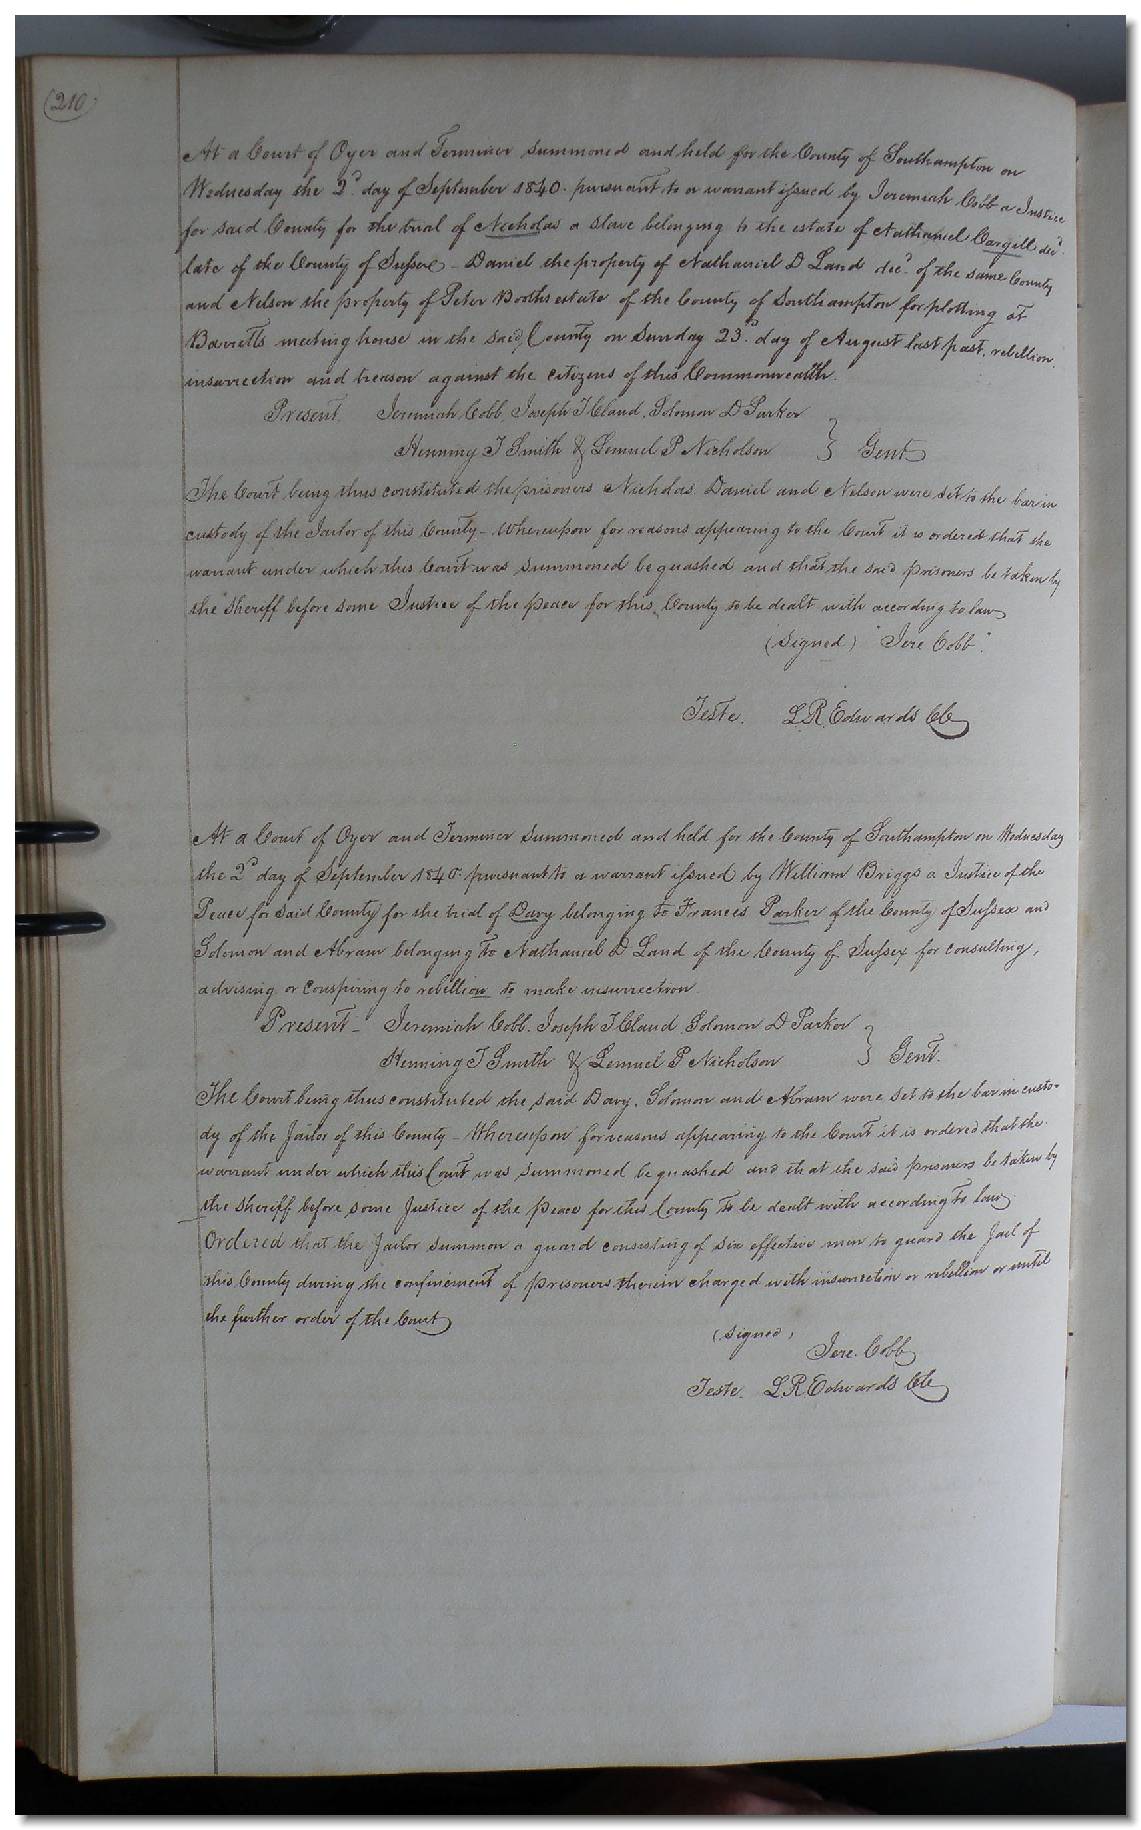 (210)
At a Court of Oyer and Terminer summoned and held for the County of Southampton on
Wednesday the 2d day of September 1840. pursuant to a warrant issued by Jeremiah Cobb a Justice
for said County for the trial of Nicholas a slave belonging to the estate of Nathaniel Cargill decd.
late of the County of Sussex - Daniel the property of Nathaniel D Land decd. of the same County
and Nelson the property of Peter Booths estate of the County of Southampton for plotting at
Barretts meeting house in the said County on Sunday 23d. day of August last past, rebellion
insurrection and treason against the citizens of this Commonwealth.
Present. Jeremiah Cobb, Joseph T Claud, Solomon D Parker
Henning T Smith & Lemuel P Nicholson } Gent
The Court being thus constituted the prisoners Nicholas Daniel and Nelson were set to the bar in
custody of the Jailor of this County - Whereupon for reasons appearing to the Court it is ordered that the
warrant under which this Court was summoned be quashed and that the said prisoners be taken by
the Sheriff before some Justice of the peace for this County to be dealt with according to law
(Signed) "Jere Cobb".
Teste. L R Edwards Clk
At a Court of Oyer and Terminer summoned and held for the County of Southampton on Wednesday
the 2d day of September 1840 pursuant to a warrant issued by William Briggs a Justice of the
Peace for said County for the trial of Davy belonging to Frances Parker of the County of Sussex and
Solomon and Abram belonging to Nathaniel D Land of the County of Sussex for consulting,
advising or conspiring to rebellion to make insurrection
Present - Jeremiah Cobb. Joseph T Claud, Solomon D Parker
Henning T Smith & Lemuel P Nicholson } Gent.
The Court being thus constituted the said Davy, Solomon and Abram were set to the bar in custo-
dy of the Jailor of this County - Whereupon for reasons appearing to the Court it is ordered that the
warrant under which this Court was summoned be quashed and that the said prisoners be taken by
the Sheriff before some Justice of the peace for this County to be dealt with according to law
Ordered that the Jailor summon a guard consisting of six effective men to guard the Jail of
this County during the confinement of prisoners therein charged with insurrection or rebellion or until
the further order of the Court
(Signed)
Jere. Cobb
Teste. L R Edwards Clk